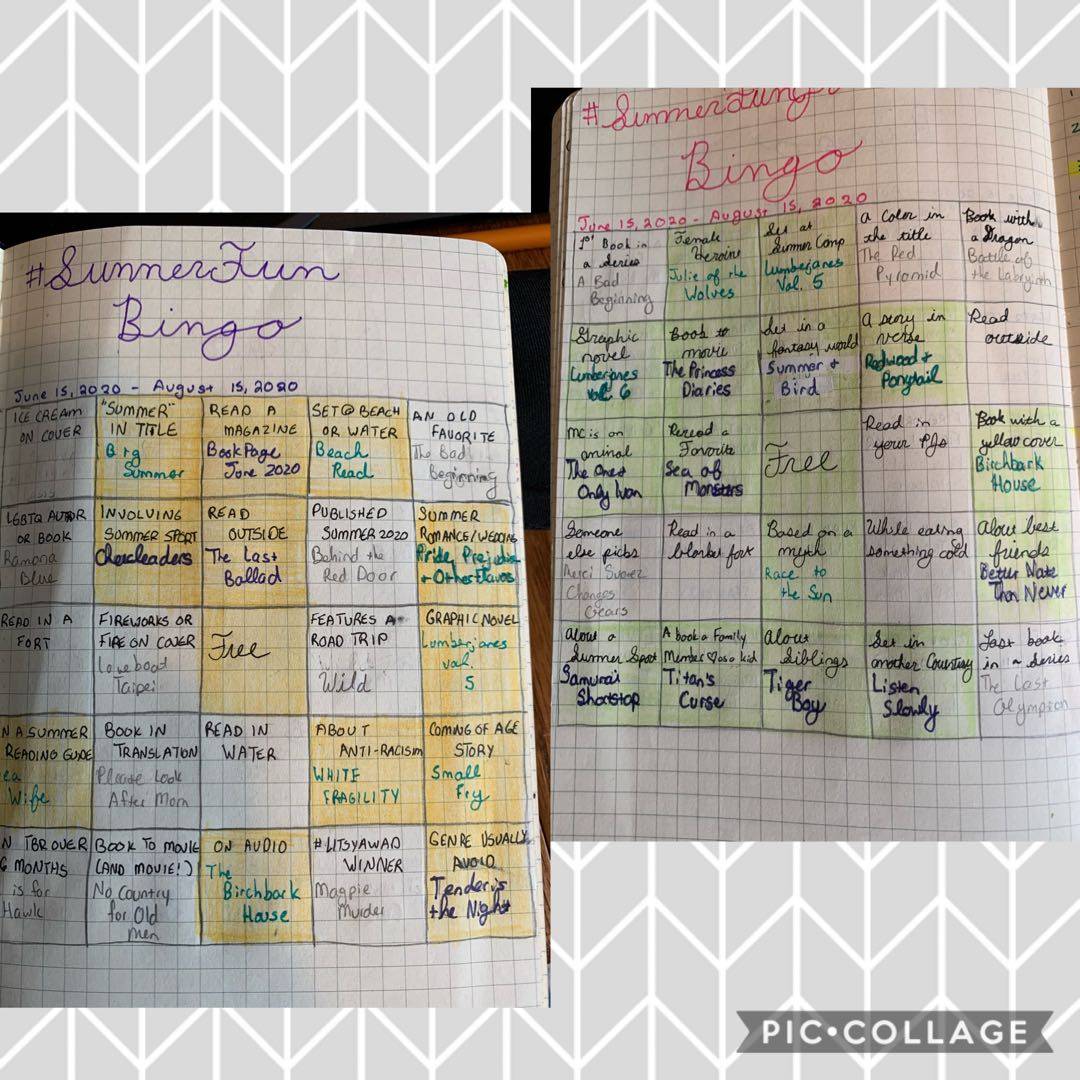 #SummerFun
Bingo
June 15, 2020 - August 15, 2020
ICE CREAM
ON COVER
"SUMMER"
IN TITLE
Big
Summer
READ A
MAGAZINE
BookPage
June 2020
SET@ BEACH
OR WATER
Beach
Read
AN OLD
FAVORITE
The Bad
Beginning
LGBTQ AUTHOR
OR BOOK
Ramona
Blue
INVOLVING
SUMMER SPORT
Cheerleaders
READ
OUTSIDE
The Last
Ballad
PUBLISHED
SUMMER 2020
Behind the
Red Door
SUMMER
ROMANCE/WEDDING
Pride, Prejudice
+ Other Flavors
READ IN A
FORT
FIREWORKS OR
FIRE ON COVER
Loveboat
Taipei
Free
FEATURES A
ROAD TRIP
Wild
GRAPHIC NOVEL
Lumberjanes
vol.
5
N A SUMMER
READING GUIDE
Wife
BOOK IN
TRANSLATION
Please Look
After Mom
READ IN
WATER
ABOUT
ANTI-RACISM
WHITE
FRAGILITY
COMING OF AGE
STORY
Small
Fry
N TBR OVER
6 MONTHS
is for
Hawk
BOOK TO MOVIE
(AND MOVIE!)
No Country
for Old
Men
ON AUDIO
The
Birchbark
House
#LITSYAWARD
WINNER
Magpie
Murder
GENRE USUALLY
AVOID
Tender is
the Night
Bingo
June 15, 2020 - August 15, 2020
1st Book in
a Series
A Bad
Beginning
Female
Heroine
Julie of the
Wolves
Set at
Summer Camp
Lumberjanes
Vol. 5
a Color in
the title
The Red
Pyramid
Book with
a Dragon
Battle of
the Labyrinth
Graphic
novel
Lumberjanes
Vol. 6
Book to
movie
The Princess
Diaries
Set in a
fantasy world
Summer +
Bird
A story in
verse
Redwood +
Ponytail
Read
outside
MC is an
animal
The One +
Only Ivan
Reread a
Favorite
Sea of
Monsters
Free
Read in
your PJs
Book with a
yellow cover
Birchbark
House
Someone
else picks
Merci Suarez
Changes
Gears
Read in a
blanket fort
Based on a
myth
Race to
the Sun
While eating
something cold
About best
friends
Better Nate
Than Never
About a
Summer Sport
Samurai
Shortstop
A book a Family
Member ♡ as a kid
Titan's
Curse
About
Siblings
Tiger
Boy
Set in
another Country
Listen
Slowly
Last book
in a series
The Last
Olympian
PIC•COLLAGE